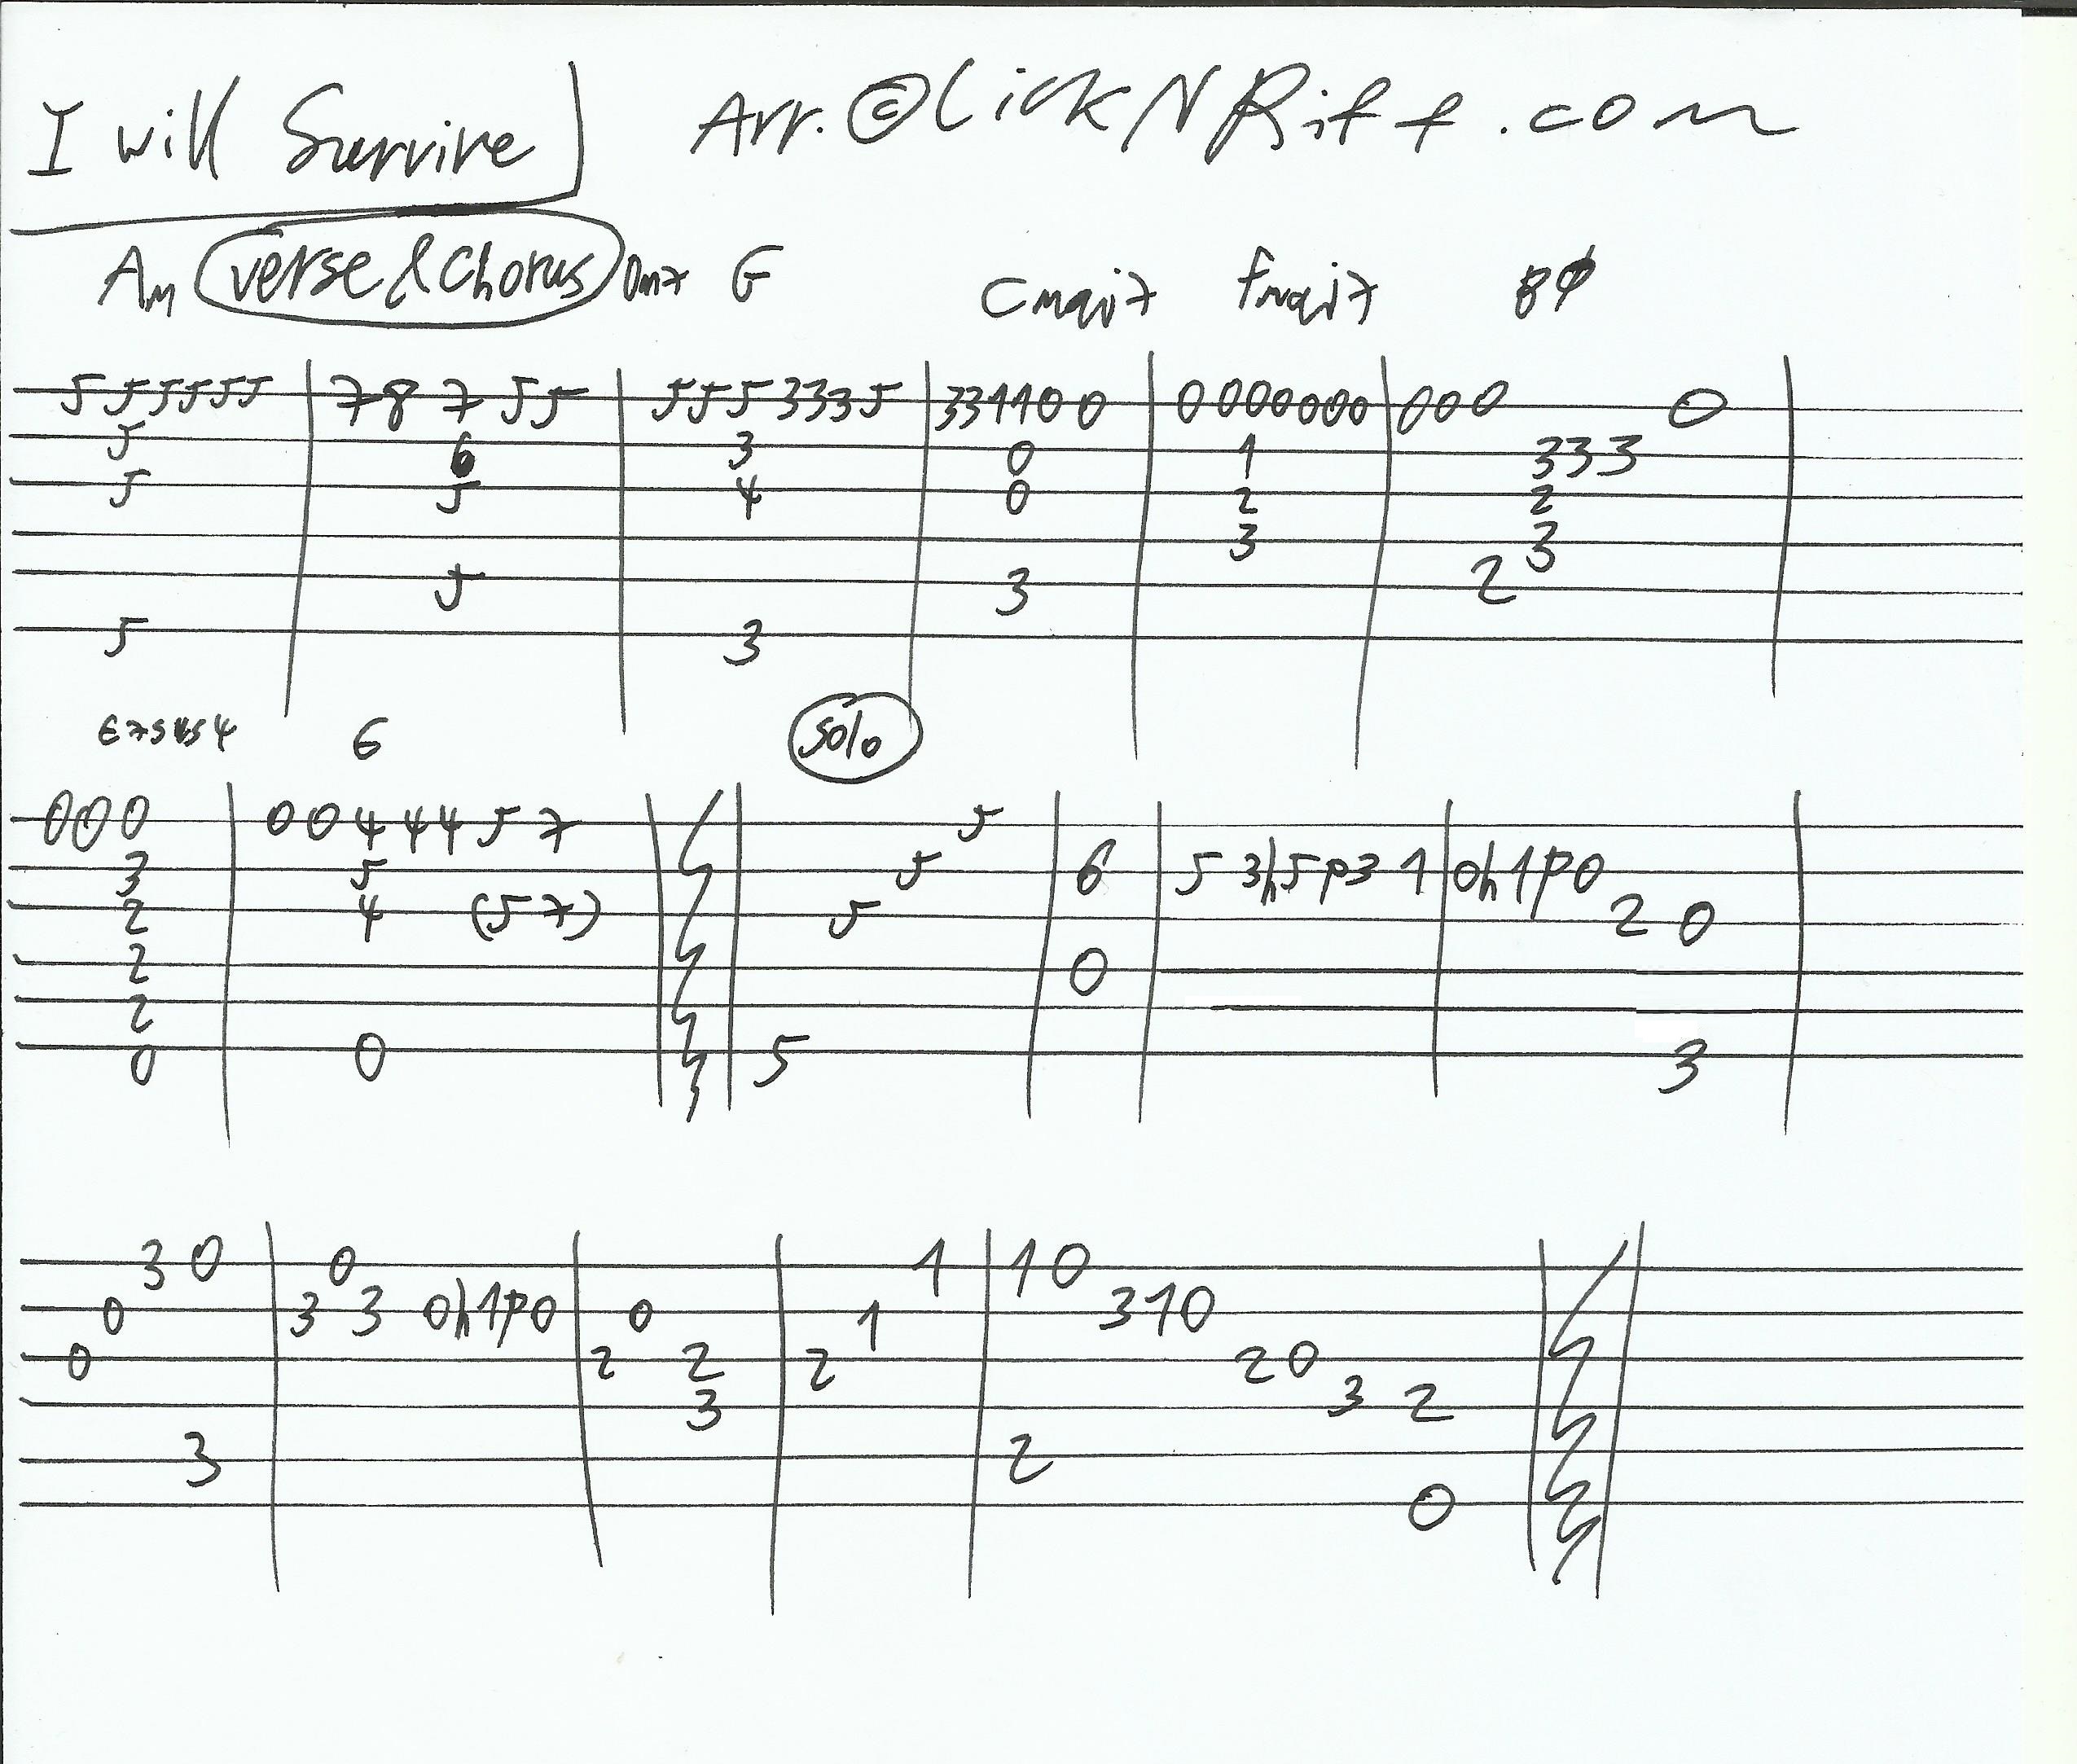 I will Survive Arr. © LickNRiff.com
Am verse & Chorus Dm7 G Cmaj7 fmaj7 BØ
5 5 5 5 5 5 7 8 7 5 5 5 5 5 3 3 3 5 3 3 1 1 0 0 0 0 0 0 0 0 0 0 0 0 0
5 6 3 0 1 3 3 3
5 5 4 0 2 2
3 3
5 3 2
5 3
E7sus4 E solo
0 0 0 0 0 4 4 4 5 7 5
3 5 5 6 5 3h5p3 1 0h1p0
2 4 (5 7) 5 2 0
2 0
2
0 0 5 3
3 0 0 1 1 0
0 3 3 0h1p0 0 1 3 1 0
0 2 2 2 2 0
3 3 2
3 2
0